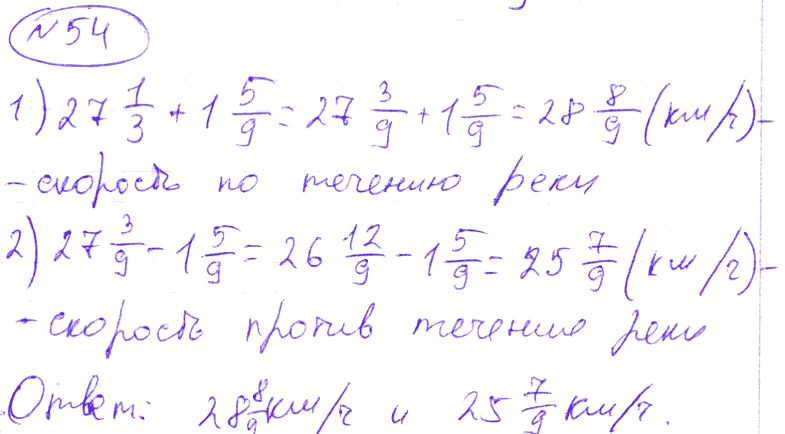 №54
1) 27 1/3 + 1 5/9 = 27 3/9 + 1 5/9 = 28 8/9 (км/ч) –
– скорость по течению реки
2) 27 3/9 – 1 5/9 = 26 12/9 – 1 5/9 = 25 7/9 (км/ч) –
– скорость против течение реки
Ответ: 28 8/9 км/ч и 25 7/9 км/ч.